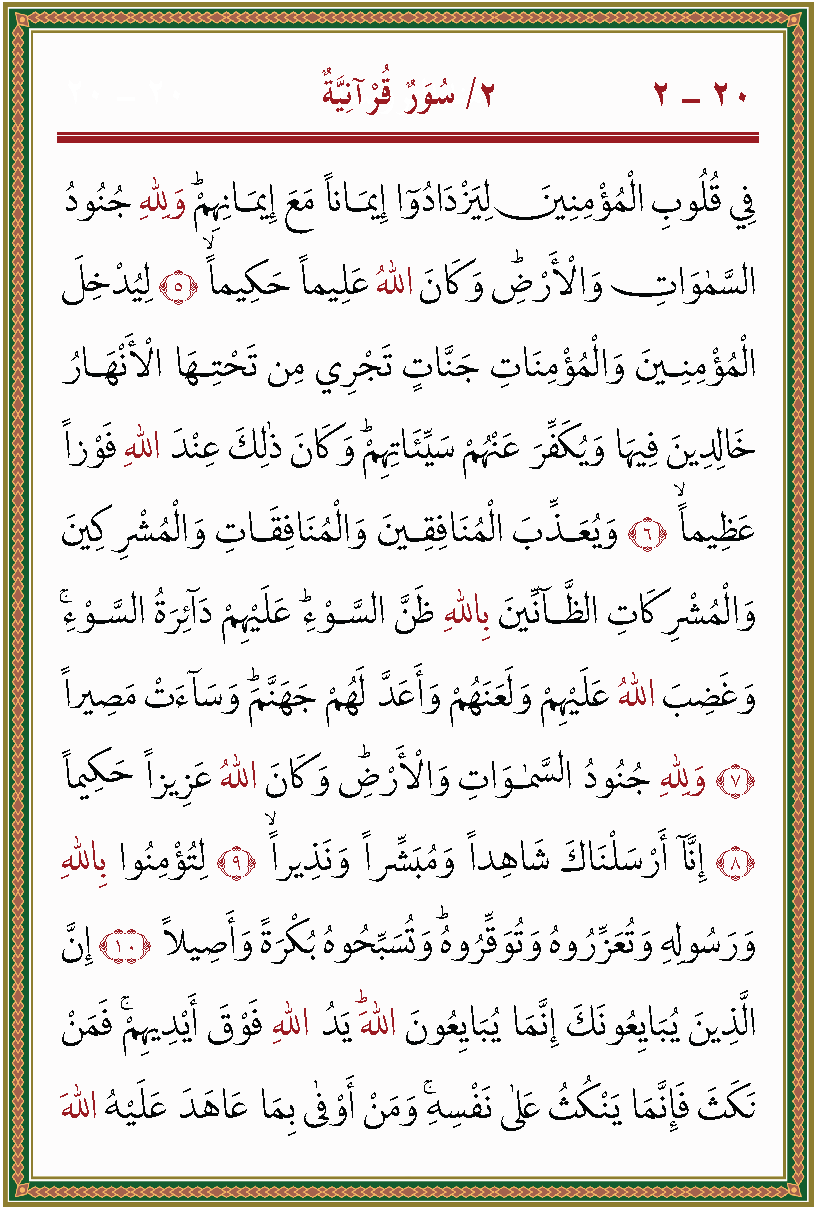 ٢٠ – ٢ ٢/ سُوَرٌ قُرْآنِيَّةٌ ٢٠ – ٢٠
فِي قُلُوبِ الْمُؤْمِنِينَ لِيَزْدَادُوٓا إِيمَاناً مَعَ إِيمَانِهِمْۜ وَلِلهِ جُنُودُ
السَّمٰوَاتِ وَالْأَرْضِۜ وَكَانَ اللهُ عَلِيماً حَكِيماًۙ ﴿٥﴾ لِيُدْخِلَ
الْمُؤْمِنِينَ وَالْمُؤْمِنَاتِ جَنَّاتٍ تَجْرِي مِنْ تَحْتِهَا الْأَنْهَارُ
خَالِدِينَ فِيهَا وَيُكَفِّرَ عَنْهُمْ سَيِّئَاتِهِمْۜ وَكَانَ ذٰلِكَ عِنْدَ اللهِ فَوْزاً
عَظِيماًۙ ﴿٦﴾ وَيُعَذِّبَ الْمُنَافِقِينَ وَالْمُنَافِقَاتِ وَالْمُشْرِكِينَ
وَالْمُشْرِكَاتِ الظَّآنِّينَ بِاللهِ ظَنَّ السَّوْءِۜ عَلَيْهِمْ دَآئِرَةُ السَّوْءِۚ
وَغَضِبَ اللهُ عَلَيْهِمْ وَلَعَنَهُمْ وَأَعَدَّ لَهُمْ جَهَنَّمَۜ وَسَآءَتْ مَصِيراً
﴿٧﴾ وَلِلهِ جُنُودُ السَّمٰوَاتِ وَالْأَرْضِۜ وَكَانَ اللهُ عَزِيزاً حَكِيماً
﴿٨﴾ إِنَّآ أَرْسَلْنَاكَ شَاهِداً وَمُبَشِّراً وَنَذِيراًۙ ﴿٩﴾ لِتُؤْمِنُوا بِاللهِ
وَرَسُولِهِ وَتُعَزِّرُوهُ وَتُوَقِّرُوهُۜ وَتُسَبِّحُوهُ بُكْرَةً وَأَصِيلاً ﴿١٠﴾ إِنَّ
الَّذِينَ يُبَايِعُونَكَ إِنَّمَا يُبَايِعُونَ اللهَۜ يَدُ اللهِ فَوْقَ أَيْدِيهِمْۚ فَمَنْ
نَكَثَ فَإِنَّمَا يَنْكُثُ عَلٰى نَفْسِهِۚ وَمَنْ أَوْفٰى بِمَا عَاهَدَ عَلَيْهُ اللهَ